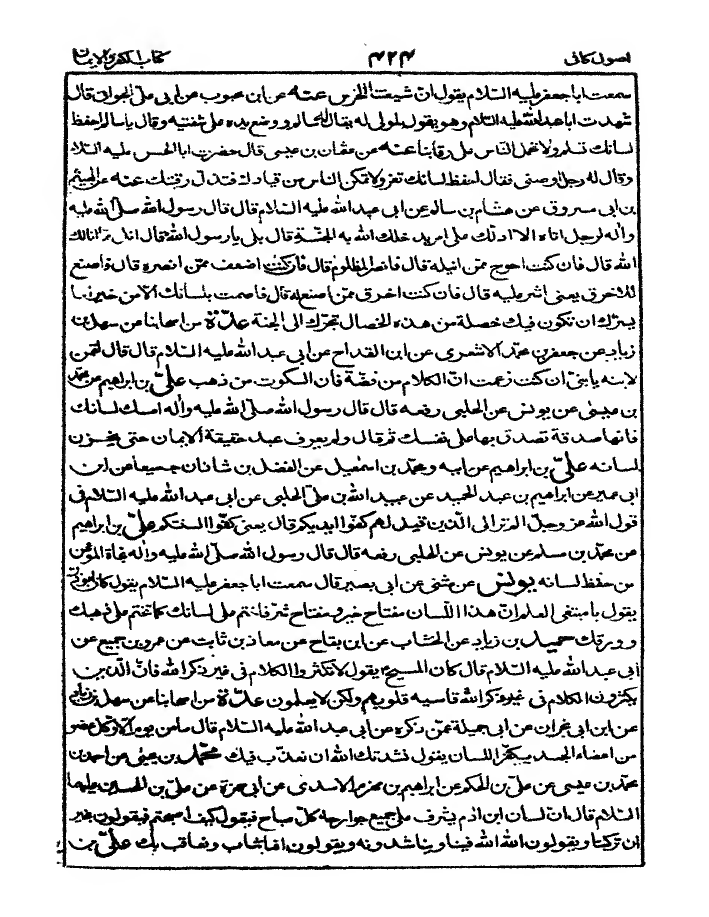 اصول كافى ٤٢٤ كتاب الكفر والايمان
سمعت ابا جعفر عليه السّلام يقول انّ شيعتنا الخرس عنه عن ابن محبوب عن ابى علىّ الجوانى قال
شهدت ابا عبد الله عليه السّلام وهو يقول لمولى له يقال له سالم ووضع يده على شفتيه وقال يا سالم احفظ
لسانك تسلم ولا تحمل الناس على رقابنا عنه عن عثمان بن عيسى قال حضرت ابا الحسن عليه السّلام
وقال له رجل اوصنى فقال احفظ لسانك تعز ولا تمكن الناس من قيادك فتذل رقبتك عنه عن الهيثم
بن ابى مسروق عن هشام بن سالم عن ابى عبد الله عليه السّلام قال قال رسول الله صلّى الله عليه
واله لرجل اتاه الا ادلّك على امر يدخلك الله به الجنّة قال بلى يا رسول الله قال انل ممّا انالك
الله قال فان كنت احوج ممّن انيله قال فانصر المظلوم قال فان كنت اضعف ممّن انصره قال فاصنع
للاخرق يعنى اشر عليه قال فان كنت اخرق ممّن اصنع له قال فاصمت لسانك الا من خير اما
يسرّك ان تكون فيك خصلة من هذه الخصال تجرّك الى الجنة عدّة من اصحابنا عن سهل بن
زياد عن جعفر بن محمّد الاشعرى عن ابن القداح عن ابى عبد الله عليه السّلام قال قال لقمن
لابنه يا بنىّ ان كنت زعمت انّ الكلام من فضّة فان السكوت من ذهب علىّ بن ابراهيم عن محمّد
بن عيسى عن يونس عن الحلبى رفعه قال قال رسول الله صلّى الله عليه واله امسك لسانك
فانها صدقة تصدق بها على نفسك ثم قال ولا يعرف عبد حقيقة الايمان حتى يخزن
لسانه علىّ بن ابراهيم عن ابيه ومحمّد بن اسمعيل عن الفضل بن شاذان جميعا عن ابن
ابى عمير عن ابراهيم بن عبد الحميد عن عبيد الله بن علىّ الحلبى عن ابى عبد الله عليه السّلام فى
قول الله عز وجل الم تر الى الّذين قيل لهم كفوا ايديكم قال يعنى كفوا السنتكم علىّ بن ابراهيم
عن محمّد بن عيسى عن يونس عن الحلبى رفعه قال قال رسول الله صلّى الله عليه واله نجاة المؤمن
من حفظ لسانه يونس عن مثنى عن ابى بصير قال سمعت ابا جعفر عليه السّلام يقول كان ابوذر
يقول يا مبتغى العلم انّ هذا اللسان مفتاح خير ومفتاح شرّ فاختم على لسانك كما تختم على ذهبك
وورقك حميد بن زياد عن الخشاب عن ابن بقاح عن معاذ بن ثابت عن عمرو بن جميع عن
ابى عبد الله عليه السّلام قال كان المسيح يقول لا تكثروا الكلام فى غير ذكر الله فانّ الّذين
يكثرون الكلام فى غير ذكر الله قاسيه قلوبهم ولكن لا يعلمون عدّة من اصحابنا عن سهل بن زياد
عن ابن ابى نجران عن ابى جميلة عمّن ذكره عن ابى عبد الله عليه السّلام قال ما من يوم الّا وكل عضو
من اعضاء الجسد يكفّر اللسان يقول نشدتك الله ان نعذّب فيك محمّد بن يحيى عن احمد بن
محمّد بن عيسى عن علىّ بن الحكم عن ابراهيم بن مهزم الاسدى عن ابى حمزة عن علىّ بن الحسين عليهما
السّلام قال انّ لسان ابن ادم يشرف على جميع جوارحه كلّ صباح فيقول كيف اصبحتم فيقولون بخير
ان تركتنا ويقولون الله الله فينا ويناشدونه ويقولون انما نثاب ونعاقب بك علىّ بن